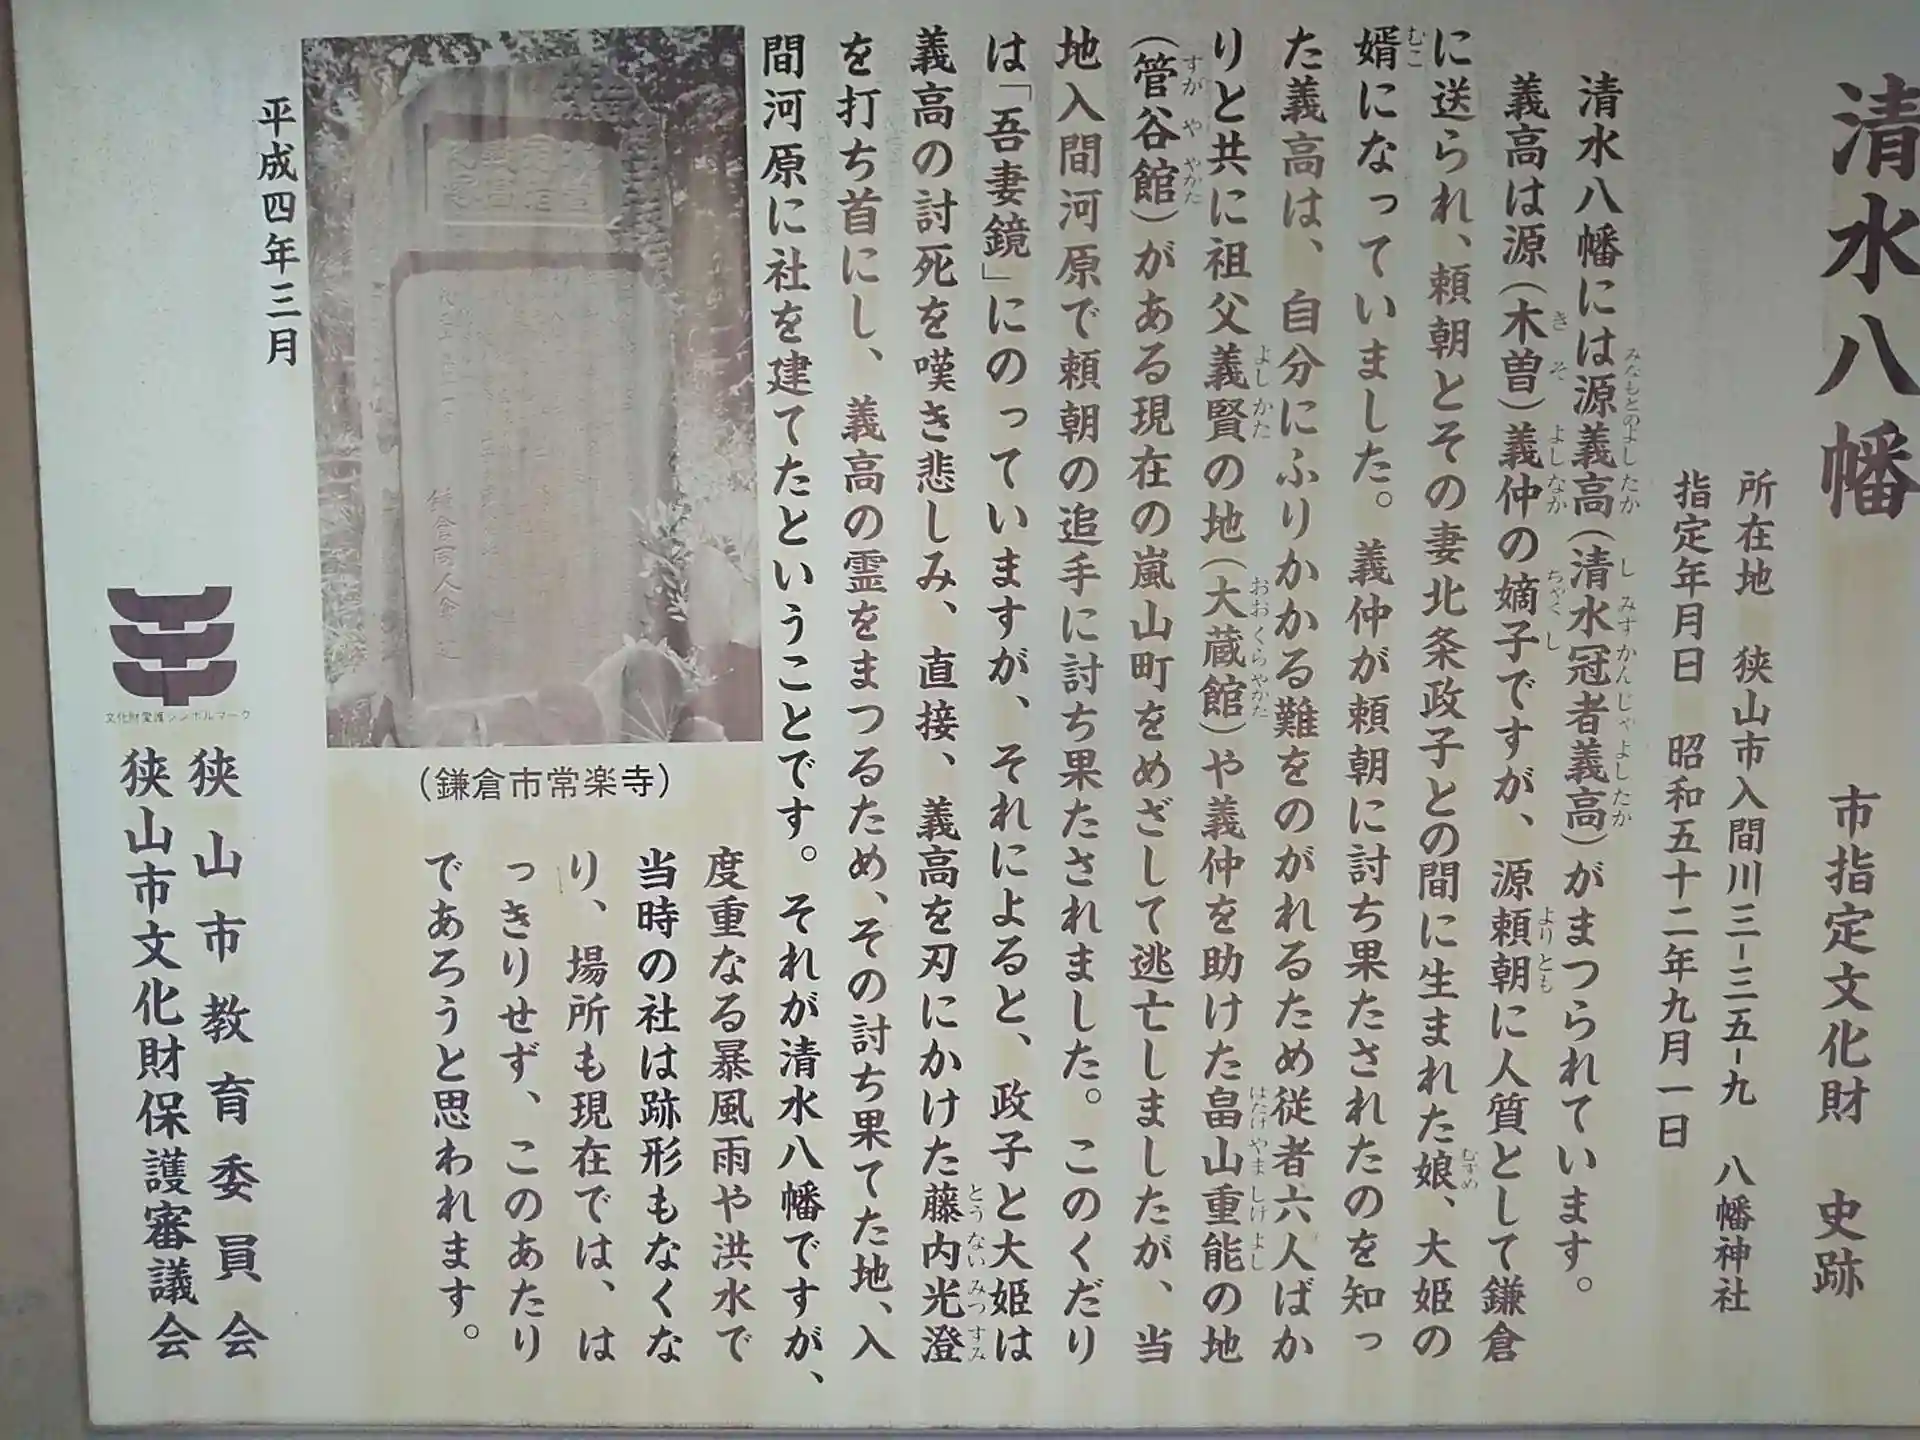 清水八幡　市指定文化財　史跡
所在地　狭山市入間川三-三五-九　八幡神社
指定年月日　昭和五十二年九月一日
清水八幡には源義高(清水冠者義高)がまつられています。
みなもとのよしたか　しみずかんじゃよしたか
義高は源(木曽)義仲の嫡子ですが、源頼朝に人質として鎌倉
きそ　よしなか　ちゃくし　よりとも
に送られ、頼朝とその妻北条政子との間に生まれた娘、大姫の
むすめ
婿になっていました。義仲が頼朝に討ち果たされたのを知っ
むこ
た義高は、自分にふりかかる難をのがれるため従者六人ばか
りと共に祖父義賢の地(大蔵館)や義仲を助けた畠山重能の地
よしかた　おおくらやかた　はたけやましげよし
(管谷館)がある現在の嵐山町をめざして逃亡しましたが、当
すがややかた
地入間河原で頼朝の追手に討ち果たされました。このくだり
は「吾妻鏡」にのっていますが、それによると、政子と大姫は
義高の討死を嘆き悲しみ、直接、義高を刃にかけた藤内光澄
とうないみつすみ
を打ち首にし、義高の霊をまつるため、その討ち果てた地、入
間河原に社を建てたということです。それが清水八幡ですが、
度重なる暴風雨や洪水で
当時の社は跡形もなくな
り、場所も現在では、は
っきりせず、このあたり
であろうと思われます。
(鎌倉市常楽寺)
平成四年三月
文化財愛護シンボルマーク
狭山市教育委員会
狭山市文化財保護審議会